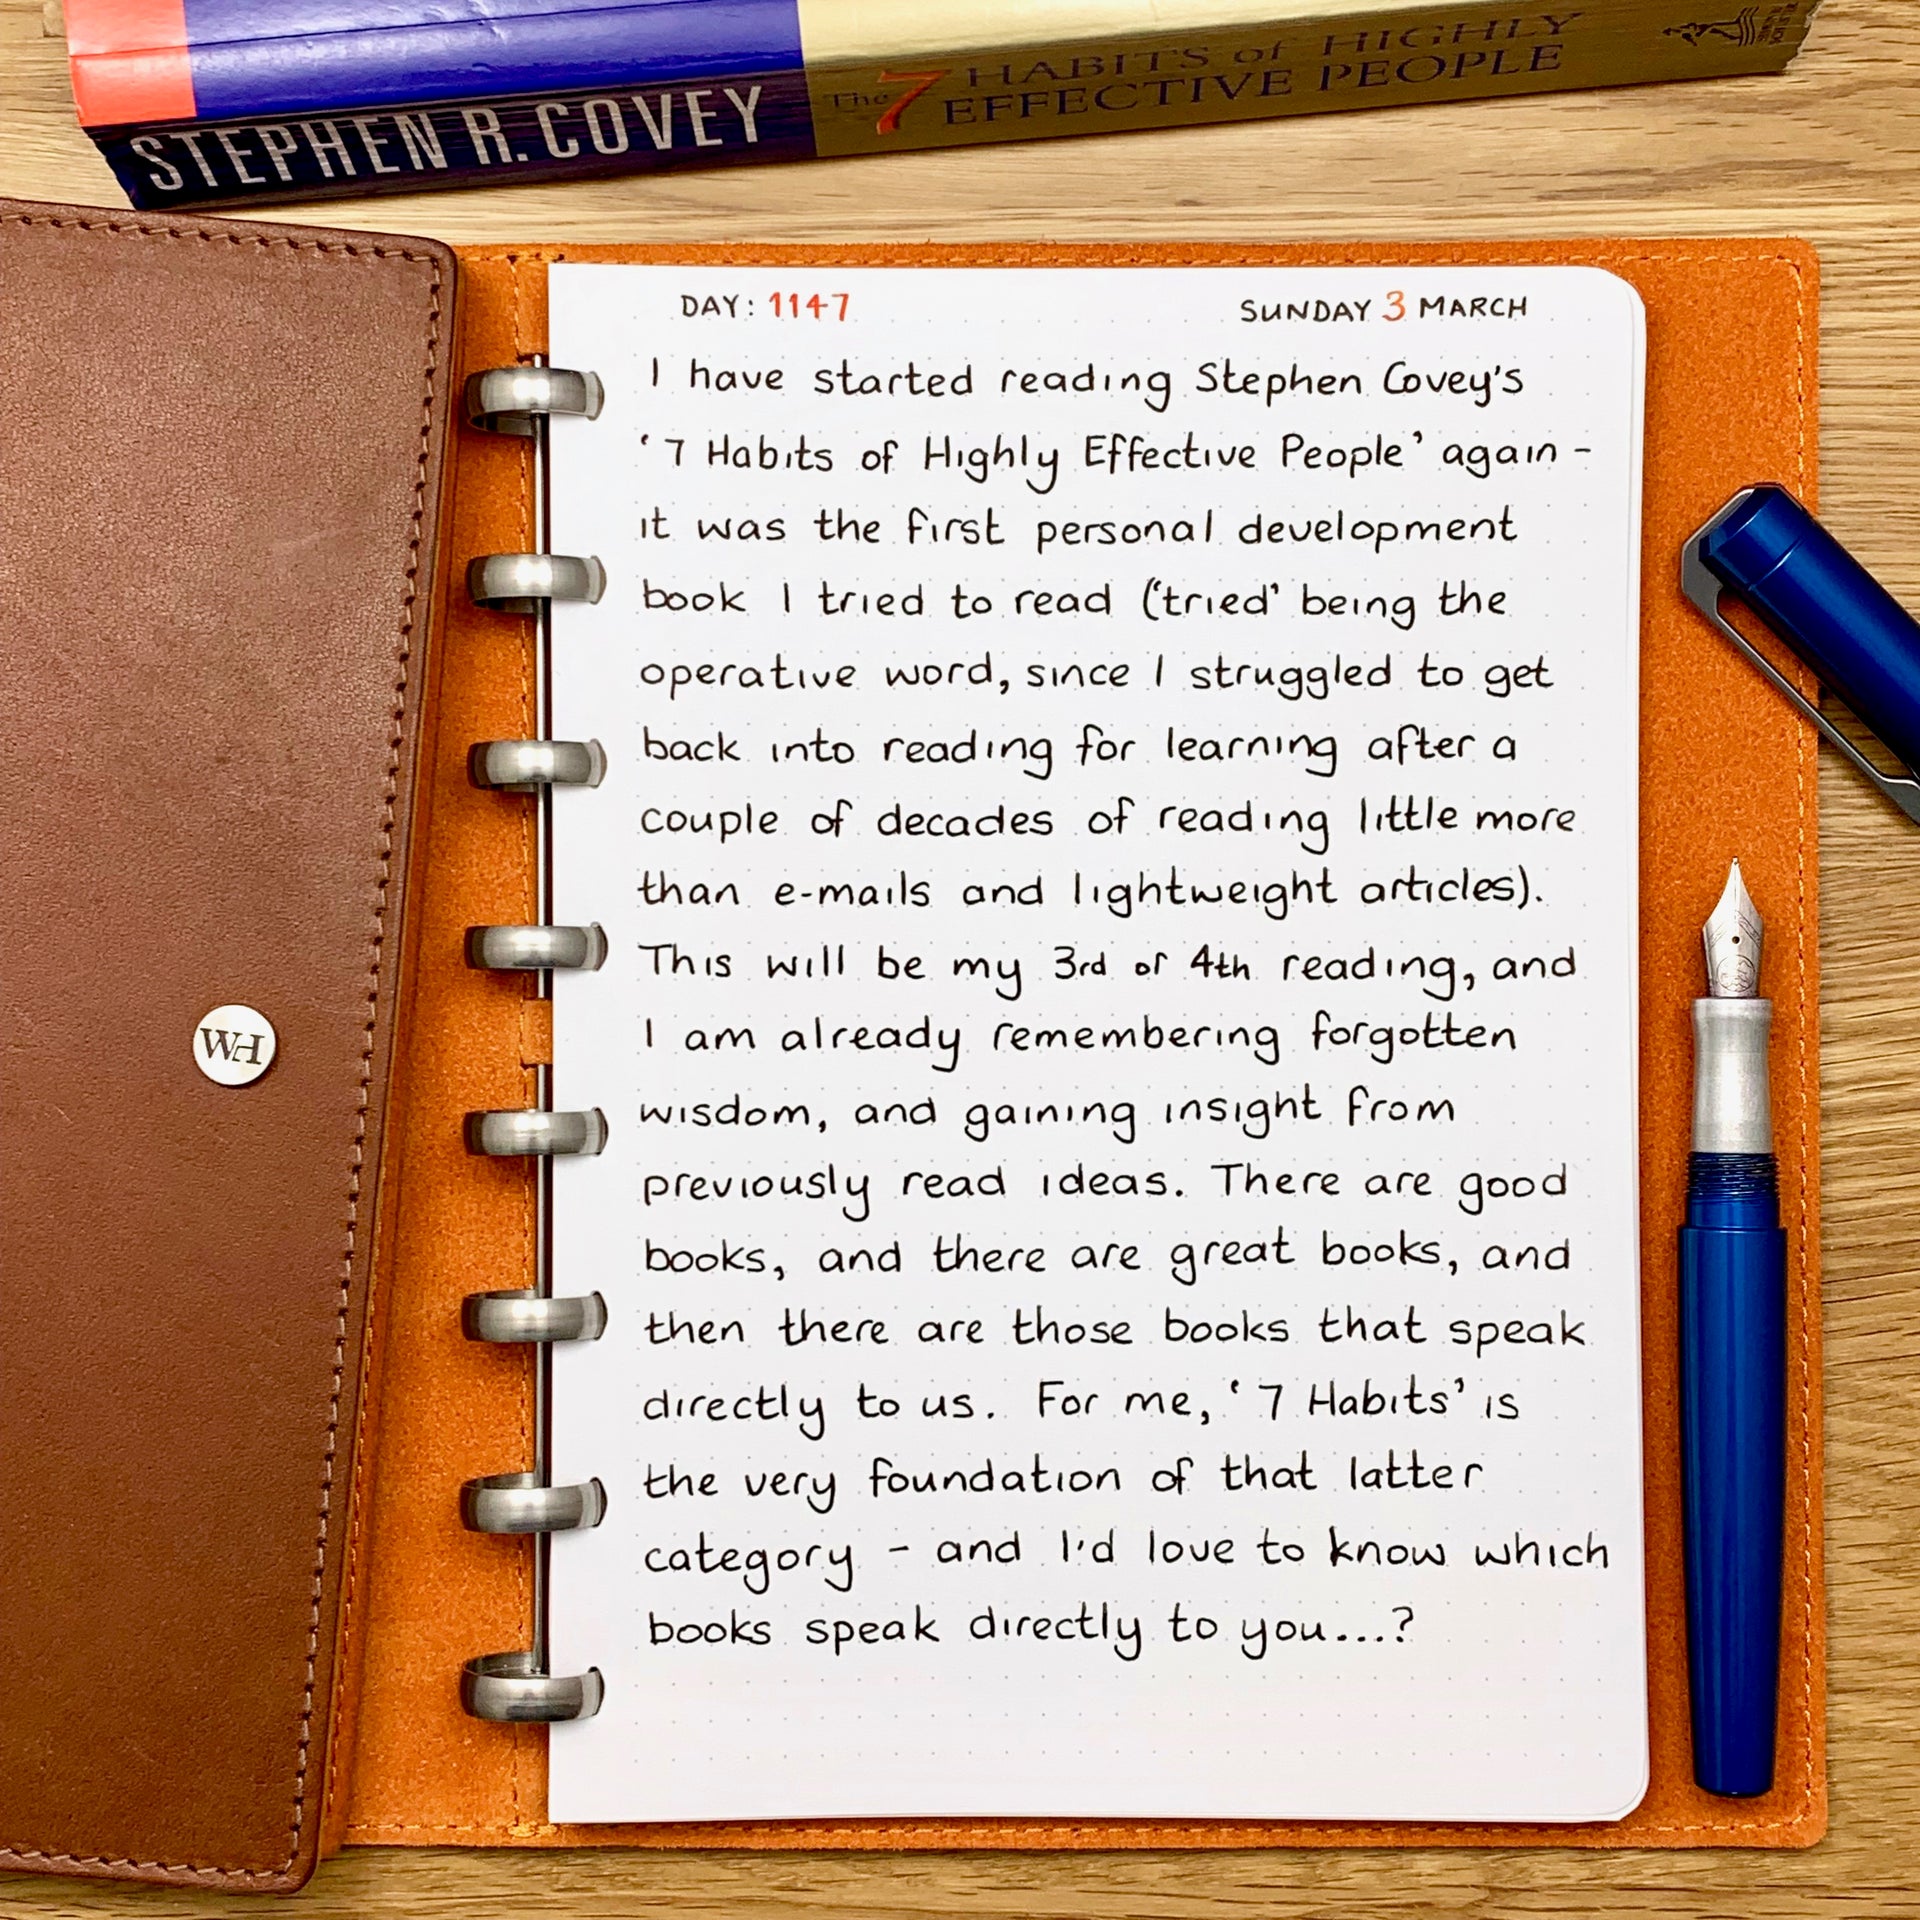 STEPHEN R. COVEY The 7 HABITS of HIGHLY
EFFECTIVE PEOPLE
DAY: 1147 SUNDAY 3 MARCH
I have started reading Stephen Covey's
‘7 Habits of Highly Effective People’ again -
it was the first personal development
book I tried to read (‘tried’ being the
operative word, since I struggled to get
back into reading for learning after a
couple of decades of reading little more
than e-mails and lightweight articles).
This will be my 3rd or 4th reading, and
I am already remembering forgotten
wisdom, and gaining insight from
previously read ideas. There are good
books, and there are great books, and
then there are those books that speak
directly to us. For me, ‘7 Habits’ is
the very foundation of that latter
category - and I'd love to know which
books speak directly to you...?
WH